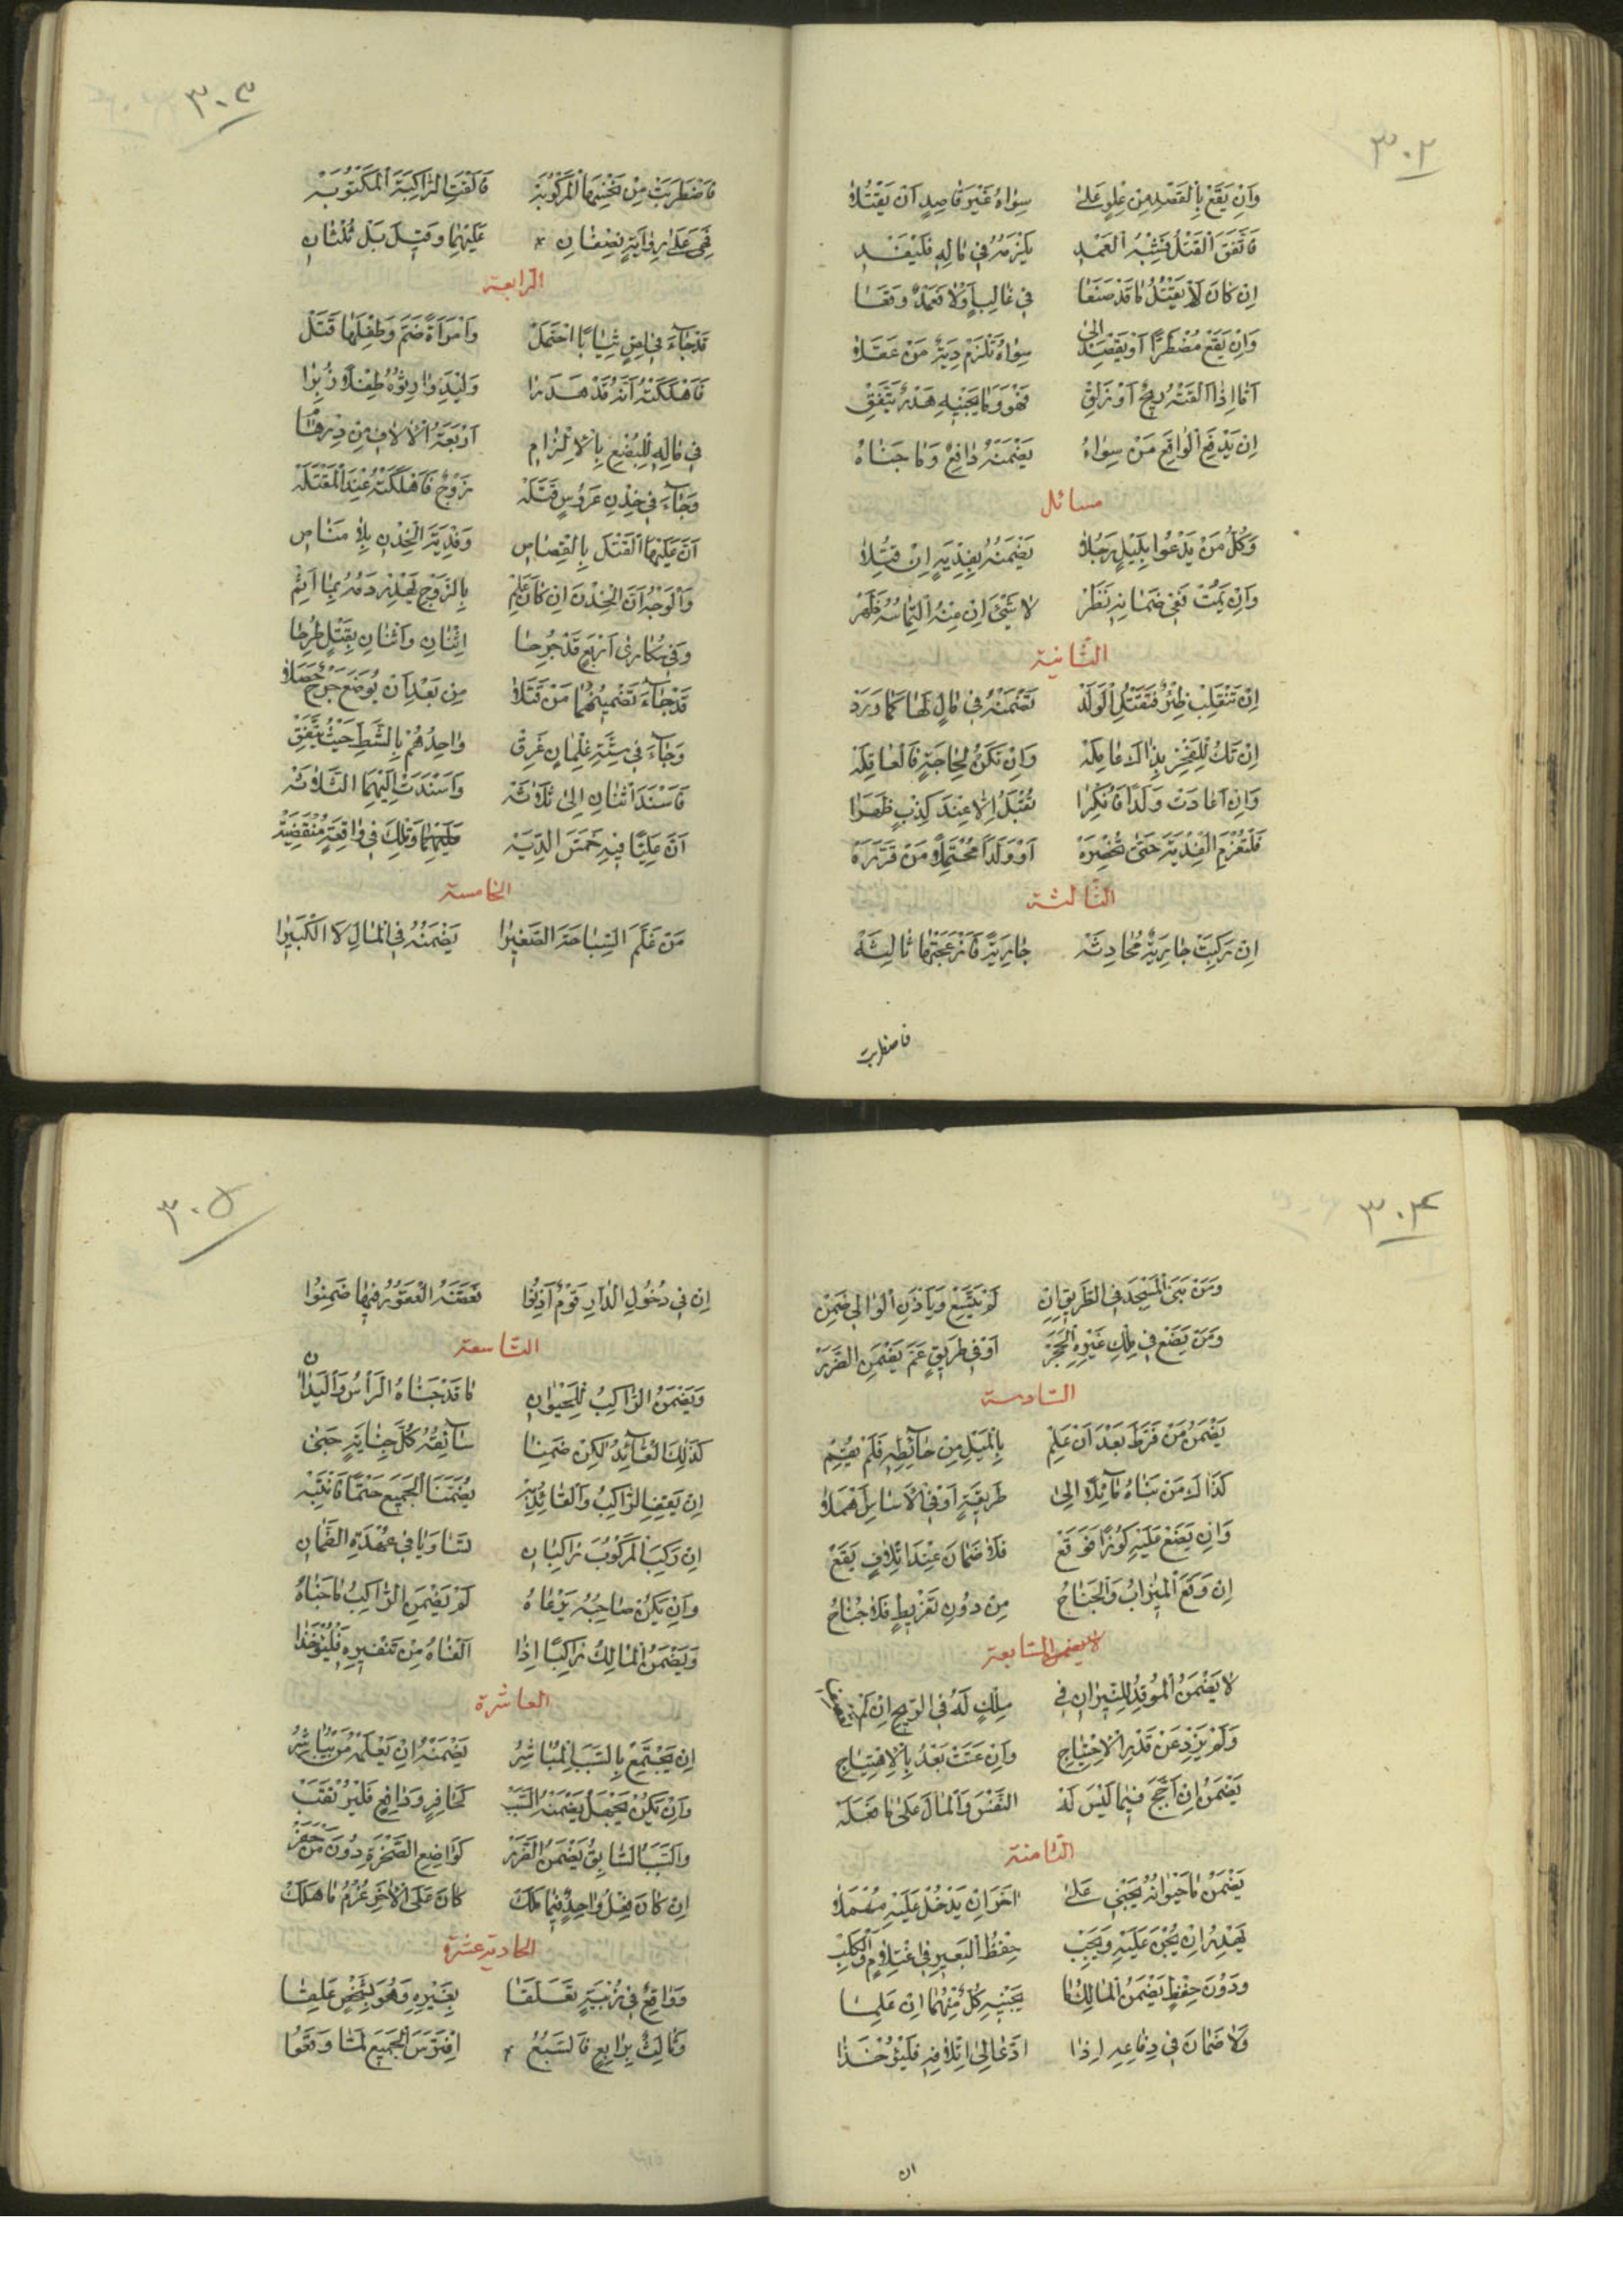 ٣٠٢
وَاِنْ يَقَعْ بِالْقَصْدِ مِنْ عِلْوٍ عَلىٰ سِوٰاهُ غَيْرَ قٰاصِدٍ اَنْ يَقْتُلاٰ
فَاتَّفَقَ الْقَتْلُ فَشِبْهُ الْعَمْدِ يَلْزَمُهُ فِي مٰالِهِ فَلْيَفْدِ
اِنْ كٰانَ لاٰ يَقْتُلُ مٰا قَدْ صَنَعٰا فِي غٰالِبٍ اَوْلاٰ فَعَمْدٌ وَقَعٰا
وَاِنْ يَقَعْ مُضْطَرًّا اَوْ يَقْصِدْ اِلىٰ سِوٰاهُ تَلْزَمْ دِيَةٌ مَنْ عَقَلاٰ
اَمّٰا اِذٰا اَلْقَتْهُ رِيحٌ اَوْ زَلِقْ فَهْوَ وَمٰا يَجْنِيهِ هَدْرٌ يَتَّفِقْ
اِنْ يَدْفَعِ الْوٰاقِعَ مَنْ سِوٰاهُ يَضْمَنُهُ دٰافِعٌ وَمٰا جَنٰاهُ
مسائل
وَكُلُّ مَنْ يَدْعُوا بِلَيْلٍ رَجُلاٰ يَضْمَنُهُ بِفِدْيَةٍ اِنْ قُتِلاٰ
وَاِنْ يَمُتْ فَفِي ضَمٰانِهِ نَظَرْ لاٰ شَيْءَ اِنْ مِنْهُ الْتِمٰاسُهُ ظَهَرْ
الثانية
اِنْ تَنْقَلِبْ ظِئْرٌ فَتَقْتُلِ الْوَلَدْ تَضْمَنْهُ فِي مٰالٍ لَهٰا كَمٰا وَرَدْ
اِنْ تَكُ لِلْفَخْرِ بِذٰا لاٰ عٰامِلَهْ وَاِنْ تَكُنْ لِحٰاجَةٍ فَالْعٰاقِلَهْ
وَاِنْ اَعٰادَتْ وَلَدًا فَاُنْكِرٰا تُقْبَلُ اِلاّٰ عِنْدَ كِذْبٍ ظَهَرٰا
فَلْتَغْرَمِ الْفِدْيَةَ حَتىّٰ تُحْضِرَهْ اَوْ وَلَدًا مُحْتَمِلاً مَنْ قَرَّرَهْ
الثالثة
اِنْ رَكِبَتْ جٰارِيَةٌ مُحٰادِثَهْ جٰارِيَةً فَاَزْعَجَتْهٰا ثٰالِثَهْ
فاضطربت
٣٠٣
فَاضْطَرَبَتْ مِنْ نَخْسِهَا الْمَرْكُوبَهْ فَاَلْقَتِ الرّٰاكِبَةَ الْمَكْتُوبَهْ
فَهِيَ عَلىٰ رِوٰايَةٍ نِصْفٰانِ عَلَيْهِمٰا وَقِيلَ بَلْ ثُلْثٰانِ
الرابعة
قَدْ جٰاءَ فِي لِصٍّ ثِيٰابًا احْتَمَلْ وَامْرَاَةً ضَمَّ وَطِفْلَهٰا قَتَلْ
فَاَهْلَكَتْهُ اَنَّهُ قَدْ هَدَرٰا وَلْيَدِ وٰارِثُوهُ طِفْلاً زُبِرٰا
فِي مٰالِهِ لِلْبُضْعِ بِالْاِلْزٰامِ اَرْبَعَةُ الْاٰلاٰفِ مِنْ دِرْهٰامِ
وَجٰاءَ فِي خِدْنِ عَرُوسٍ قَتَلَهْ زَوْجٌ فَاَهْلَكَتْهُ عِنْدَ الْمَقْتَلَهْ
اَنَّ عَلَيْهَا الْقَتْلَ بِالْقِصٰاصِ وَفِدْيَةَ الْخِدْنِ بِلاٰ مَنٰاصِ
وَالْوَجْهُ اَنَّ الْخِدْنَ اِنْ كٰانَ عَلِمْ بِالزَّوْجِ يُهْدَرْ دَمُهُ بِمٰا اَثِمْ
وَفِي سُكٰارىٰ اَرْبَعٍ قَدْ جُرِحٰا اِثْنٰانِ وَاثْنٰانِ بِقَتْلٍ طُرِحٰا
قَدْ جٰاءَ تَضْمِينُهُمٰا مَنْ قَتَلاٰ مِنْ بَعْدِ اَنْ يُوضَعَ جَرْحٌ حَصَلاٰ
وَجٰاءَ فِي سِتَّةِ غِلْمٰانٍ غَرِقْ وٰاحِدُهُمْ بِالشَّطِّ حَيْثُ يَتَّفِقْ
فَاَسْنَدَ اثْنٰانِ اِلىٰ ثَلاٰثَهْ وَاَسْنَدَتْ اِلَيْهِمَا الثَّلاٰثَهْ
اَنَّ عَلِيًّا فِيهِ خَمَّسَ الدِّيَهْ عَلَيْهِمٰا وَتِلْكَ فِي وٰاقِعَةٍ مُنْقَضِيَهْ
الخامسة
مَنْ عَلَّمَ السِّبٰاحَةَ الصَّغِيرٰا يَضْمَنُهُ فِي الْمٰالِ لاَ الْكَبِيرٰا
٣٠٤
وَمَنْ بَنَى الْمَسْجِدَ فِي الطَّرِيقِ اِنْ لَمْ يَتَّسِعْ وَيَاْذَنِ الْوٰالِي ضَمِنْ
وَمَنْ يَضَعْ فِي مِلْكِ غَيْرِهِ الْحَجَرْ اَوْ فِي طَرِيقٍ عَمَّ يَضْمَنِ الضَّرَرْ
السادسة
يَضْمَنُ مَنْ فَرَّطَ بَعْدَ اَنْ عَلِمْ بِالْمَيْلِ مِنْ حٰائِطِهِ فَلَمْ يُقِمْ
كَذٰاكَ مَنْ بَنٰاهُ مٰائِلاً اِلىٰ طَرِيقَةٍ اَوْ فِي الْاَسٰاسِ اَهْمَلاٰ
وَاِنْ يَضَعْ عَلَيْهِ كُوزًا فَوَقَعْ فَلاٰ ضَمٰانَ عِنْدَ اِتْلاٰفٍ يَقَعْ
اِنْ وَقَعَ الْمِيزٰابُ وَالْجَنٰاحُ مِنْ دُونِ تَفْرِيطٍ فَلاٰ جُنٰاحُ
السابعة
لاٰ يَضْمَنُ الْمُوقِدُ لِلنِّيرٰانِ فِي مِلْكٍ لَهُ فِي الرِّيحِ اِنْ لَمْ
وَلَمْ يَزِدْ عَنْ قَدْرِ الْاِحْتِيٰاجِ وَاِنْ عَتَتْ بَعْدُ بِالْاِهْتِيٰاجِ
يَضْمَنُ اِنْ اَجَّجَ فِيمٰا لَيْسَ لَهْ النَّفْسَ وَالْمٰالَ عَلىٰ مٰا فَعَلَهْ
الثامنة
يَضْمَنُ مٰا حَيْوٰانُهُ يَجْنِي عَلىٰ اٰخَرَ اِنْ يَدْخُلْ عَلَيْهِ مُهْمَلاٰ
يُهْدَرُ اِنْ يُجْنَ عَلَيْهِ وَيَجِبْ حِفْظُ الْبَعِيرِ فِي اغْتِلاٰمٍ وَالْكَلِبْ
وَدُونَ حِفْظٍ يَضْمَنُ الْمٰالِكُ مٰا يَجْنِيهِ كُلٌّ مِنْهُمٰا اِنْ عَلِمٰا
وَلاٰ ضَمٰانَ فِي دِفٰاعِهِ اِذٰا ادَّعٰا اِلىٰ اِتْلاٰفِهِ فَلْيُؤْخَذٰا
ان
٣٠٥
اِنْ فِي دُخُولِ الدّٰارِ قَوْمٌ اَذِنُوا فَعَضَّهُ الْعَقُورُ فِيهٰا ضَمِنُوا
التاسعة
وَيَضْمَنُ الرّٰاكِبُ لِلْحَيْوٰانِ مٰا قَدْ جَنٰاهُ الرَّاْسُ وَالْيَدٰانِ
كَذٰلِكَ الْقٰائِدُ لٰكِنْ ضَمِنٰا سٰائِقُهُ كُلَّ جِنٰايَةٍ جَنىٰ
اِنْ يَقِفِ الرّٰاكِبُ وَالْقٰائِدُ بِهْ يُضَمَّنَا الْجَمِيعَ حَتْمًا فَانْتَبِهْ
اِنْ رَكِبَ الْمَرْكُوبَ رٰاكِبٰانِ تَسٰاوَيٰا فِي عُهْدَةِ الضَّمٰانِ
وَاِنْ يَكُنْ صٰاحِبُهُ يَرْعٰاهُ لَمْ يَضْمَنِ الرّٰاكِبُ مٰا جَنٰاهُ
وَيَضْمَنُ الْمٰالِكُ رٰاكِبًا اِذٰا اَلْقٰاهُ مِنْ تَنْفِيرِهِ فَلْيُؤْخَذٰا
العاشرة
اِنْ يَجْتَمِعْ بِالسَّبَبِ الْمُبٰاشِرُ يَضْمَنُهُ اِنْ يَعْلَمْهُ مَنْ يُبٰاشِرُ
وَاِنْ يَكُنْ يَجْهَلْ يَضْمَنْهُ السَّبَبْ كَحٰافِرٍ وَدٰافِعٍ فَلْيُرْتَقَبْ
وَالسَّبَبُ السّٰابِقُ يَضْمَنُ الضَّرَرْ كَوٰاضِعِ الصَّخْرَةِ دُونَ مَنْ حَفَرْ
اِنْ كٰانَ فِعْلُ وٰاحِدٍ فِيمٰا مَلَكْ كٰانَ عَلَى الْاٰخَرِ غُرْمُ مٰا هَلَكْ
الحادية عشرة
وَوٰاقِعٌ فِي زُبْيَةٍ تَعَلَّقٰا بِغَيْرِهِ وَهُوَ بِشَخْصٍ عَلِقٰا
وَثٰالِثٌ بِرٰابِعٍ فَالسَّبُعُ اِفْتَرَسَ الْجَمِيعَ لَمّٰا وَقَعُوا